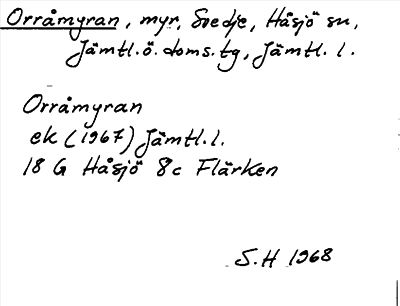 Orråmyran, myr, Svedje, Håsjö sn,
Jämtl.ö.doms.tg, Jämtl. l.
Orråmyran
ek (1967) Jämtl.l.
18 G Håsjö 8c Flärken
S.H 1968